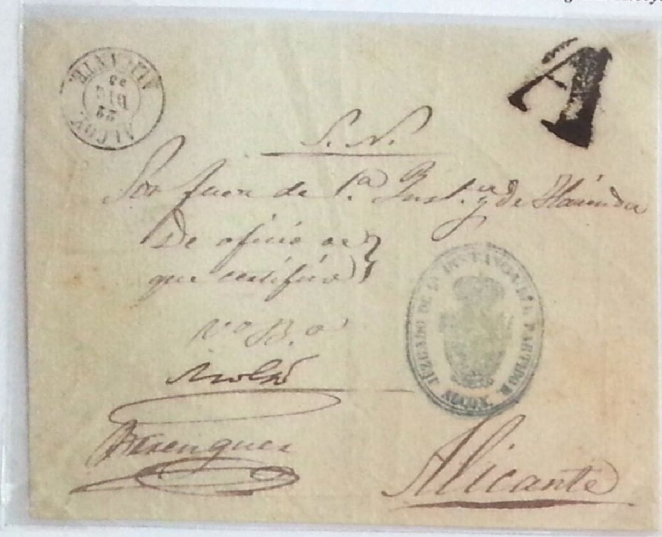 ALICANTE
ALCOY.
A
S. N.
Sor Juez de 1.ª Inst.ª y de Hacienda
De oficio de
que certifico
Vº Bº
JUZGADO DE 1ª INSTANCIA DEL PARTIDO DE
ALCOY.
Berenguer
Alicante